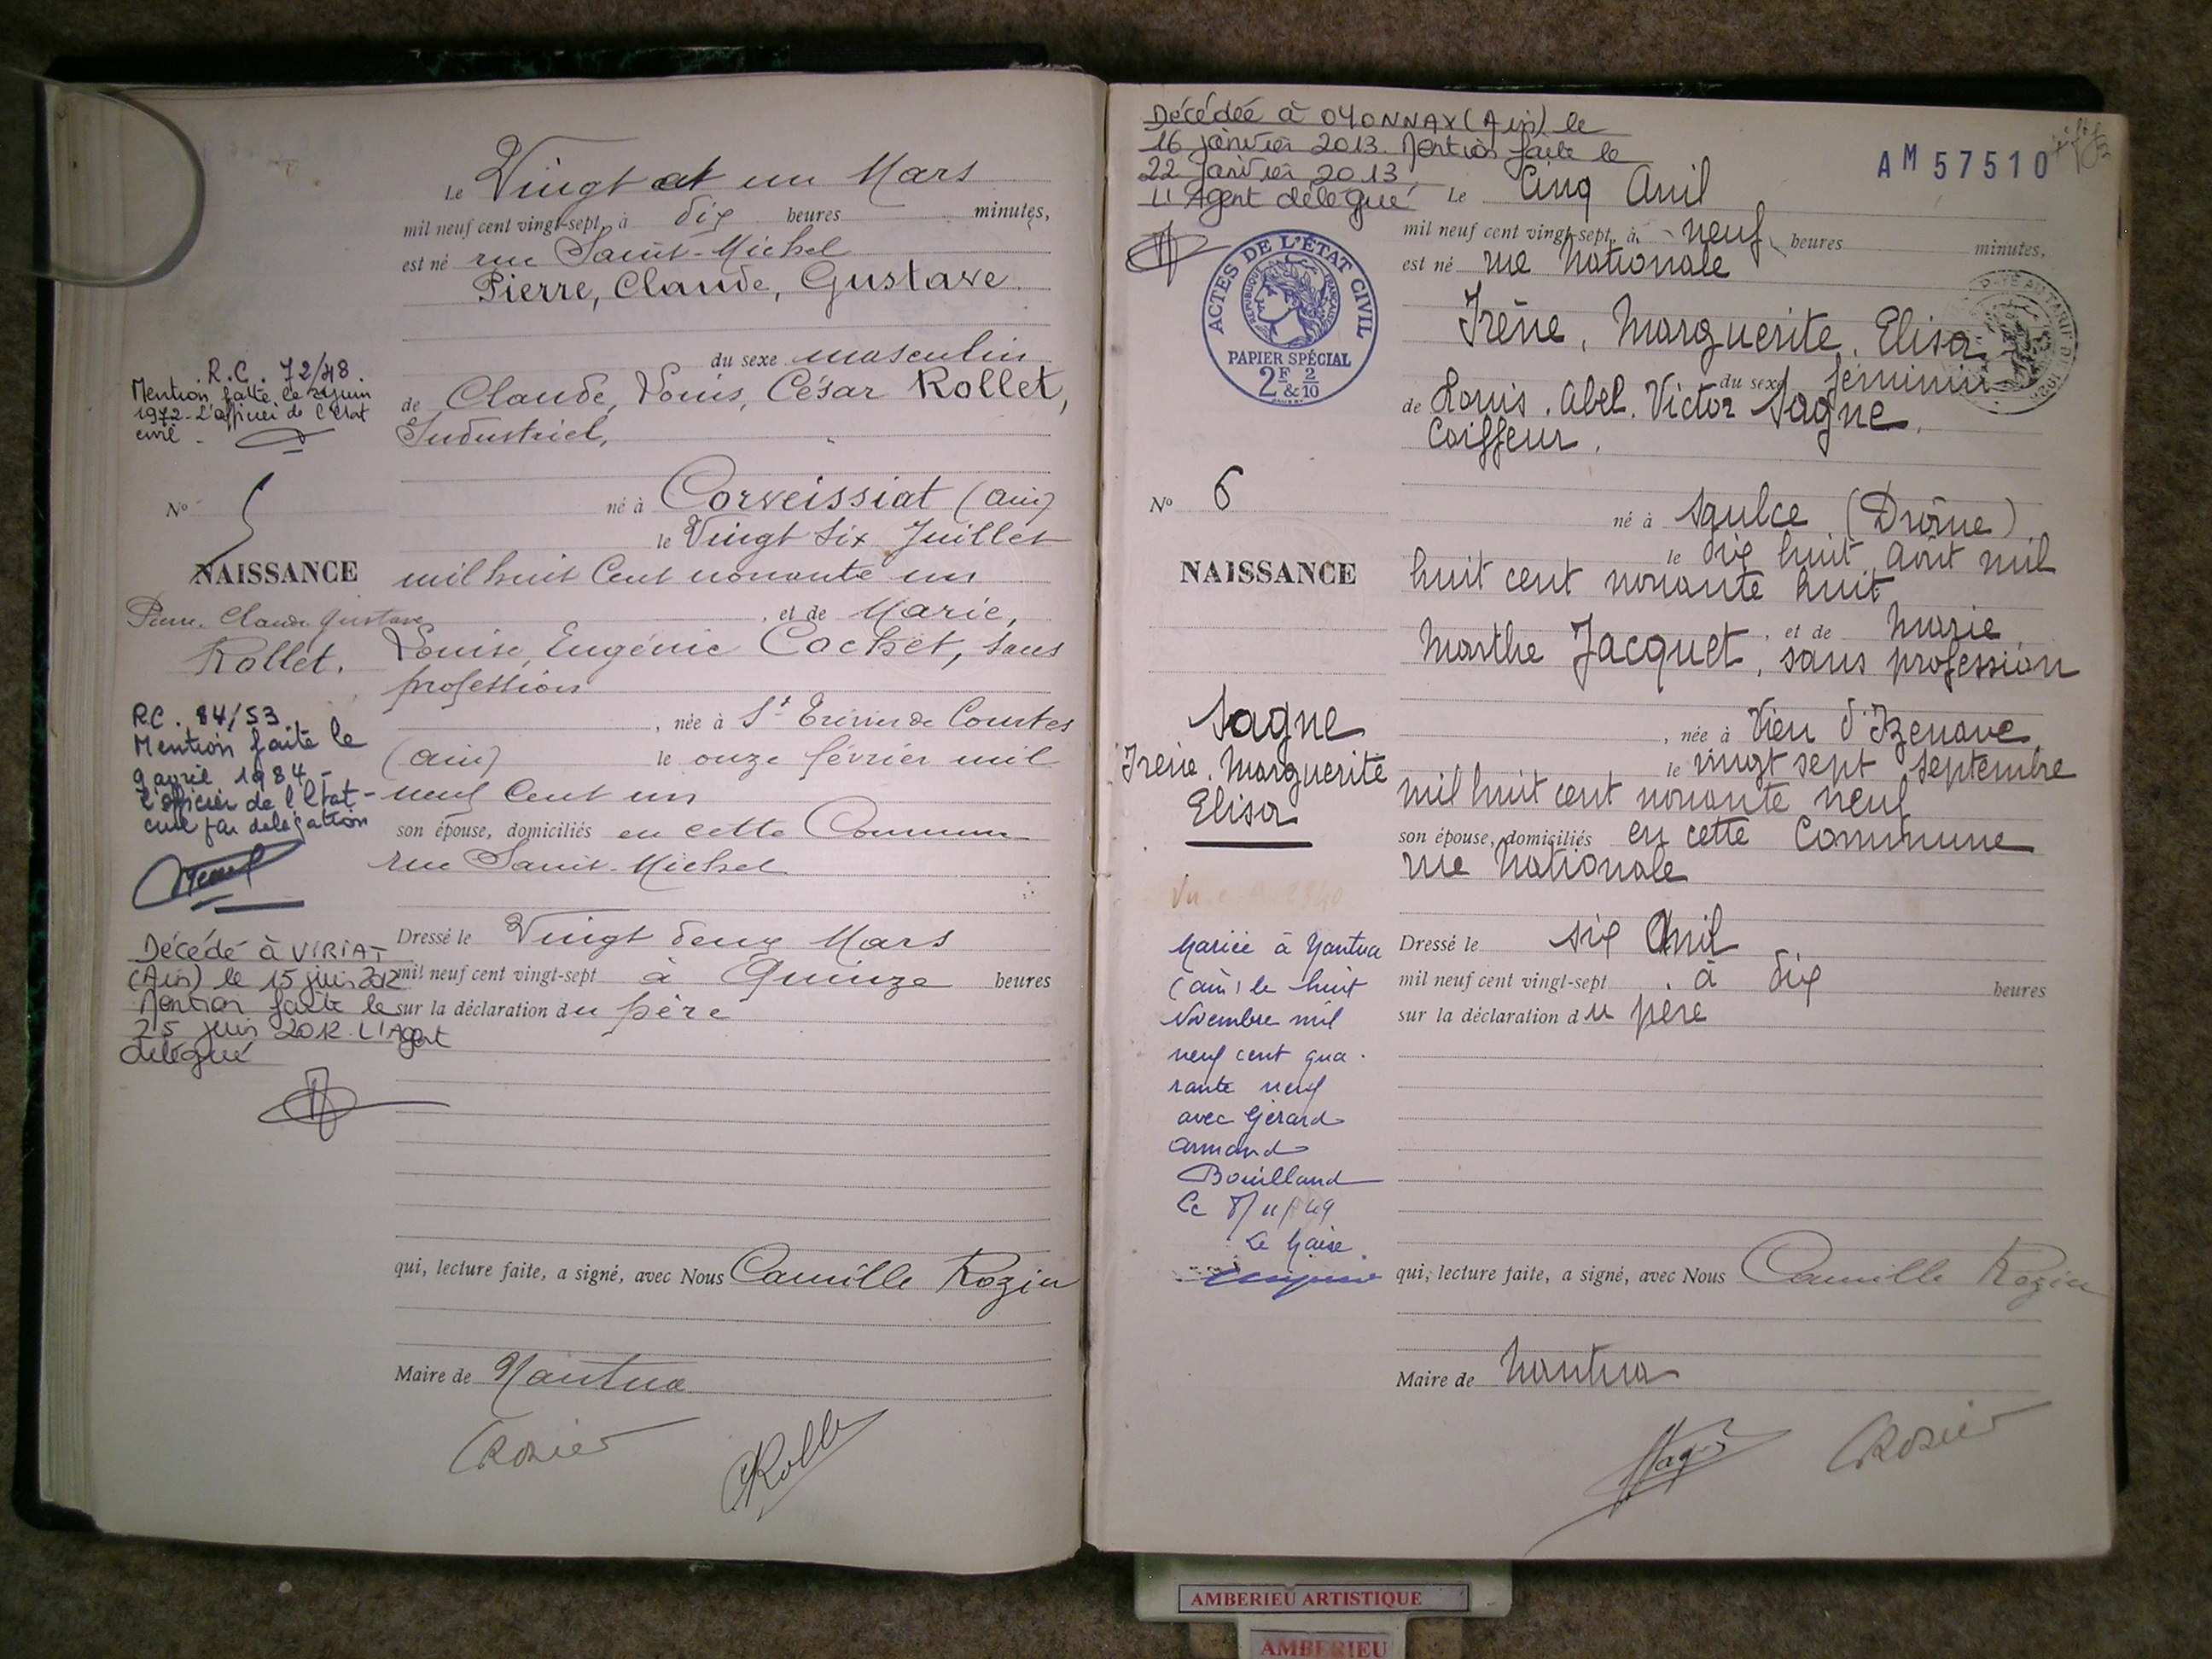 Le Vingt et un Mars
mil neuf cent vingt-sept, à dix heures minutes,
est né rue Saint-Michel
Pierre, Claude, Gustave
du sexe masculin
de Claude, Louis, César Rollet,
Industriel,
né à Corveissiat (Ain)
le Vingt six Juillet
mil huit Cent nonante un
, et de Marie,
Louise, Eugénie Cochet, sans
profession
, née à St Trivier de Courtes
(Ain) le onze février mil
neuf Cent un
son épouse, domiciliés en cette Commune
rue Saint-Michel
Dressé le Vingt deux Mars
mil neuf cent vingt-sept à Quinze heures
sur la déclaration du père
qui, lecture faite, a signé, avec Nous Camille Rozier
Maire de Nantua
R.C. 72/48
Mention faite le juin
1972 - L'officier de l'Etat
civil -
No 5
NAISSANCE
Pierre, Claude Gustave
Rollet.
RC. 84/53
Mention faite le
9 avril 1984 -
L'officier de l'Etat -
civil par delegation
Décédé à VIRIAT
(Ain) le 15 juin 2012
Mention faite le
25 juin 2012. L'Agent
délégué
Décédée à OYONNAX (Ain) le
16 janvier 2013. Mention faite le
22 janvier 2013
L'Agent délégué
AM 57510
ACTES DE L'ÉTAT CIVIL
RÉPUBLIQUE FRANÇAISE
PAPIER SPÉCIAL
2F & 2/10
Le Cinq Avril
mil neuf cent vingt-sept, à neuf heures minutes,
est né rue Nationale
Irène, Marguerite, Elisa
du sexe féminin
de Louis, Abel, Victor Sagne,
Coiffeur,
né à Saulce (Drôme)
le dix huit août mil
huit cent nonante huit
, et de Marie
Marthe Jacquet, sans profession
, née à Vieu d'Izenave
le vingt sept septembre
mil huit cent nonante neuf
son épouse, domiciliés en cette Commune
rue Nationale
Dressé le six Avril
mil neuf cent vingt-sept à dix heures
sur la déclaration du père
qui, lecture faite, a signé, avec Nous Camille Rozier
Maire de Nantua
No 6
NAISSANCE
Sagne
Irène, Marguerite
Elisa
Mariée à Nantua
(Ain) le huit
Novembre mil
neuf cent qua-
rante neuf
avec Gérard
Armand
Bouilland
Le 8/11/49
Le Maire
AMBERIEU ARTISTIQUE
AMBERIEU